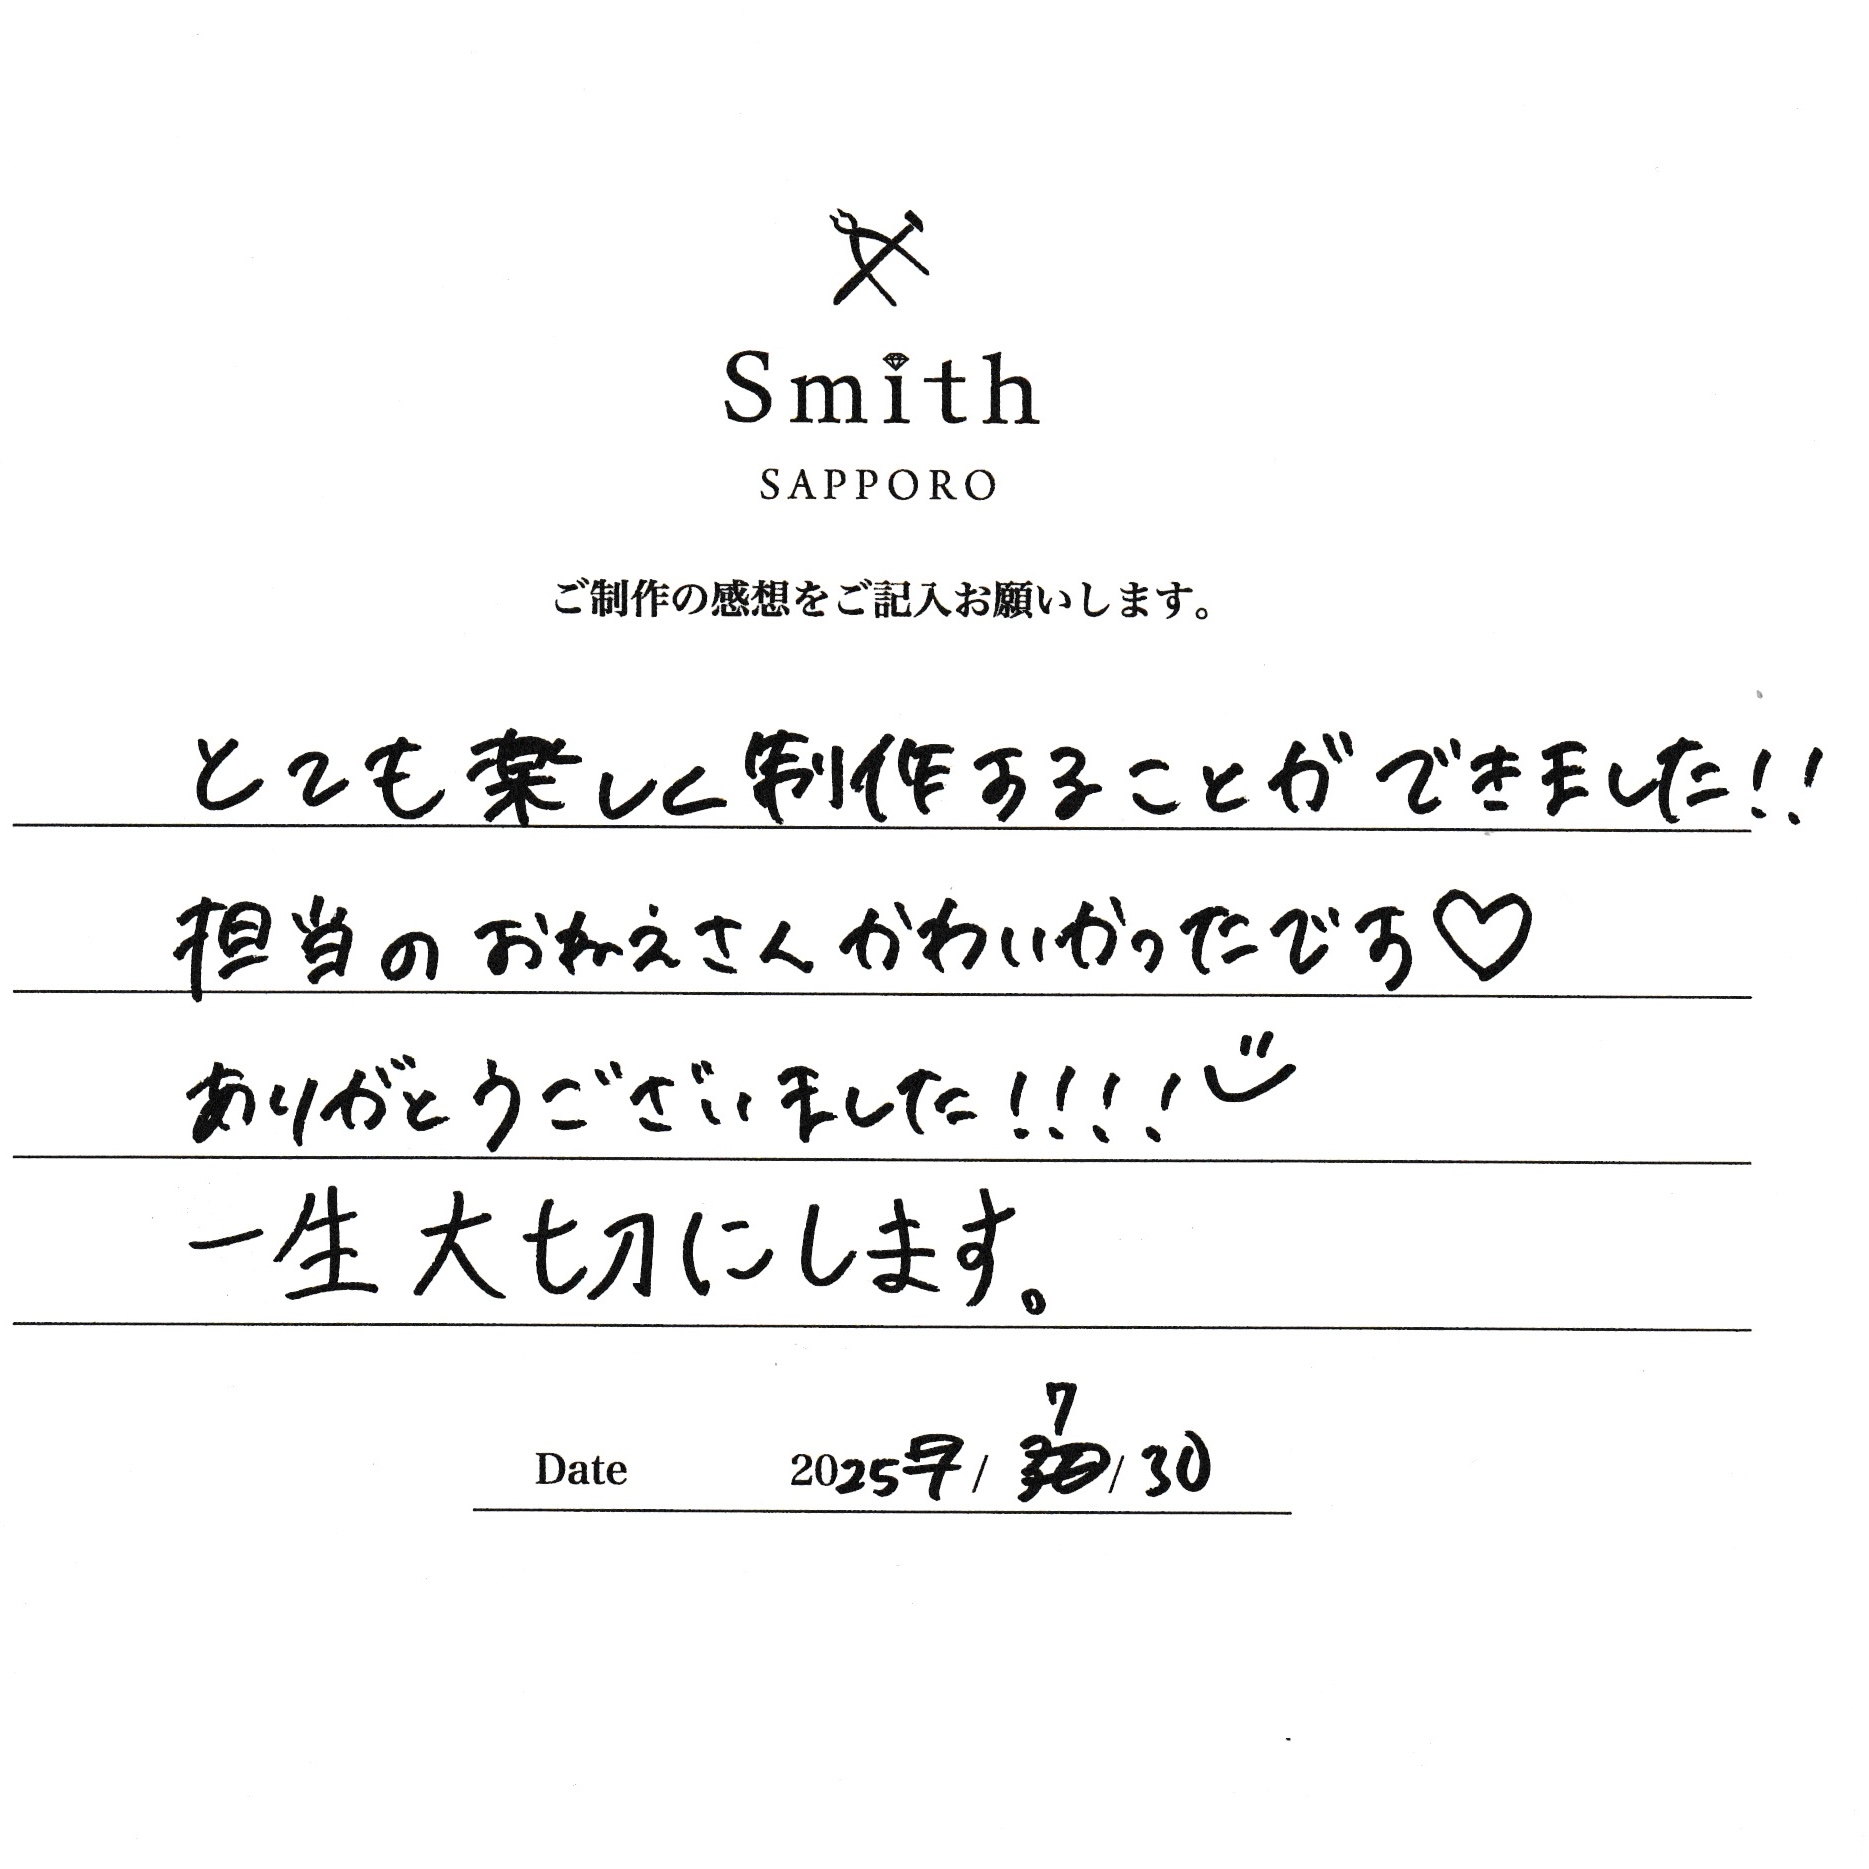 Smith
SAPPORO
ご制作の感想をご記入お願いします。
とても楽しく制作することができました!!
担当のおねえさんかわいかったです♡
ありがとうございました!!!!
一生大切にします。
7
Date 2025 / / 30